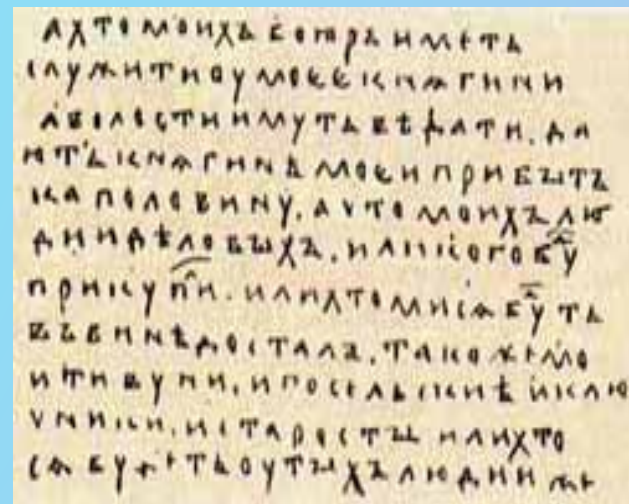 А ХТО МОИХЪ БОӔРЪ ИМЕТЬ
СЛУЖИТИ ОУ МОЕЕ КНѦГИНИ
А ВОЛОСТИ ИМУТЬ ВѢДАТИ. ДА
ЮТЬ КНѦГИНѢ МОЕИ ПРИБЫТЪ
КА ПОЛОВИНУ. А ЧТО МОИХЪ ЛЮ
ДИИ ДѢЛОВЫХЪ. ИЛИ КОГО БУ
ПРИКУПИ. ИЛИ ХТО МИ СѦ БУ ТЬ
ВЪ ВИНѢ ДОСТАЛЪ. ТАКОЖЕ МО
И ТИВУНИ. И ПОСЕЛЬСКИѢ И КЛЮ
ЧНИКИ. И СТАРОСТЫ ИЛИ ХТО
СѦ БУДЕТЬ ОУ ТЫХЪ ЛЮДИИ